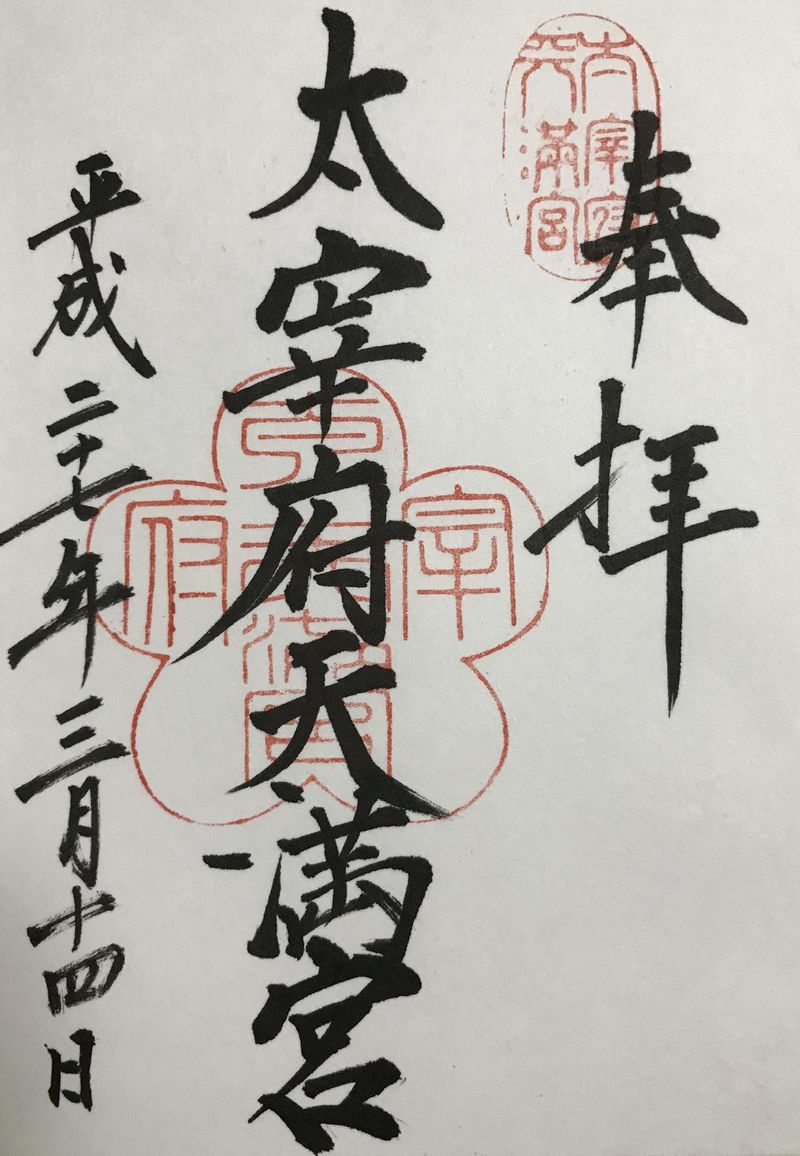 太宰府
天満宮
奉拝
太宰府天満宮
平成二十七年三月十四日
宰
府